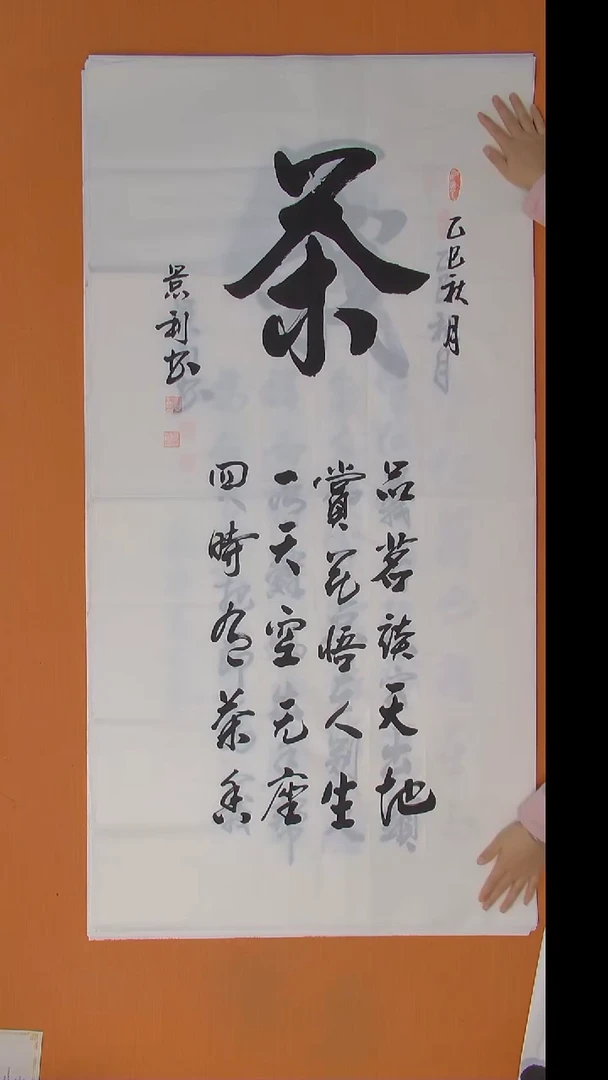 乙巳秋月
茶
品茗談天地
賞花悟人生
一天空无座
四時有茶香
景利书